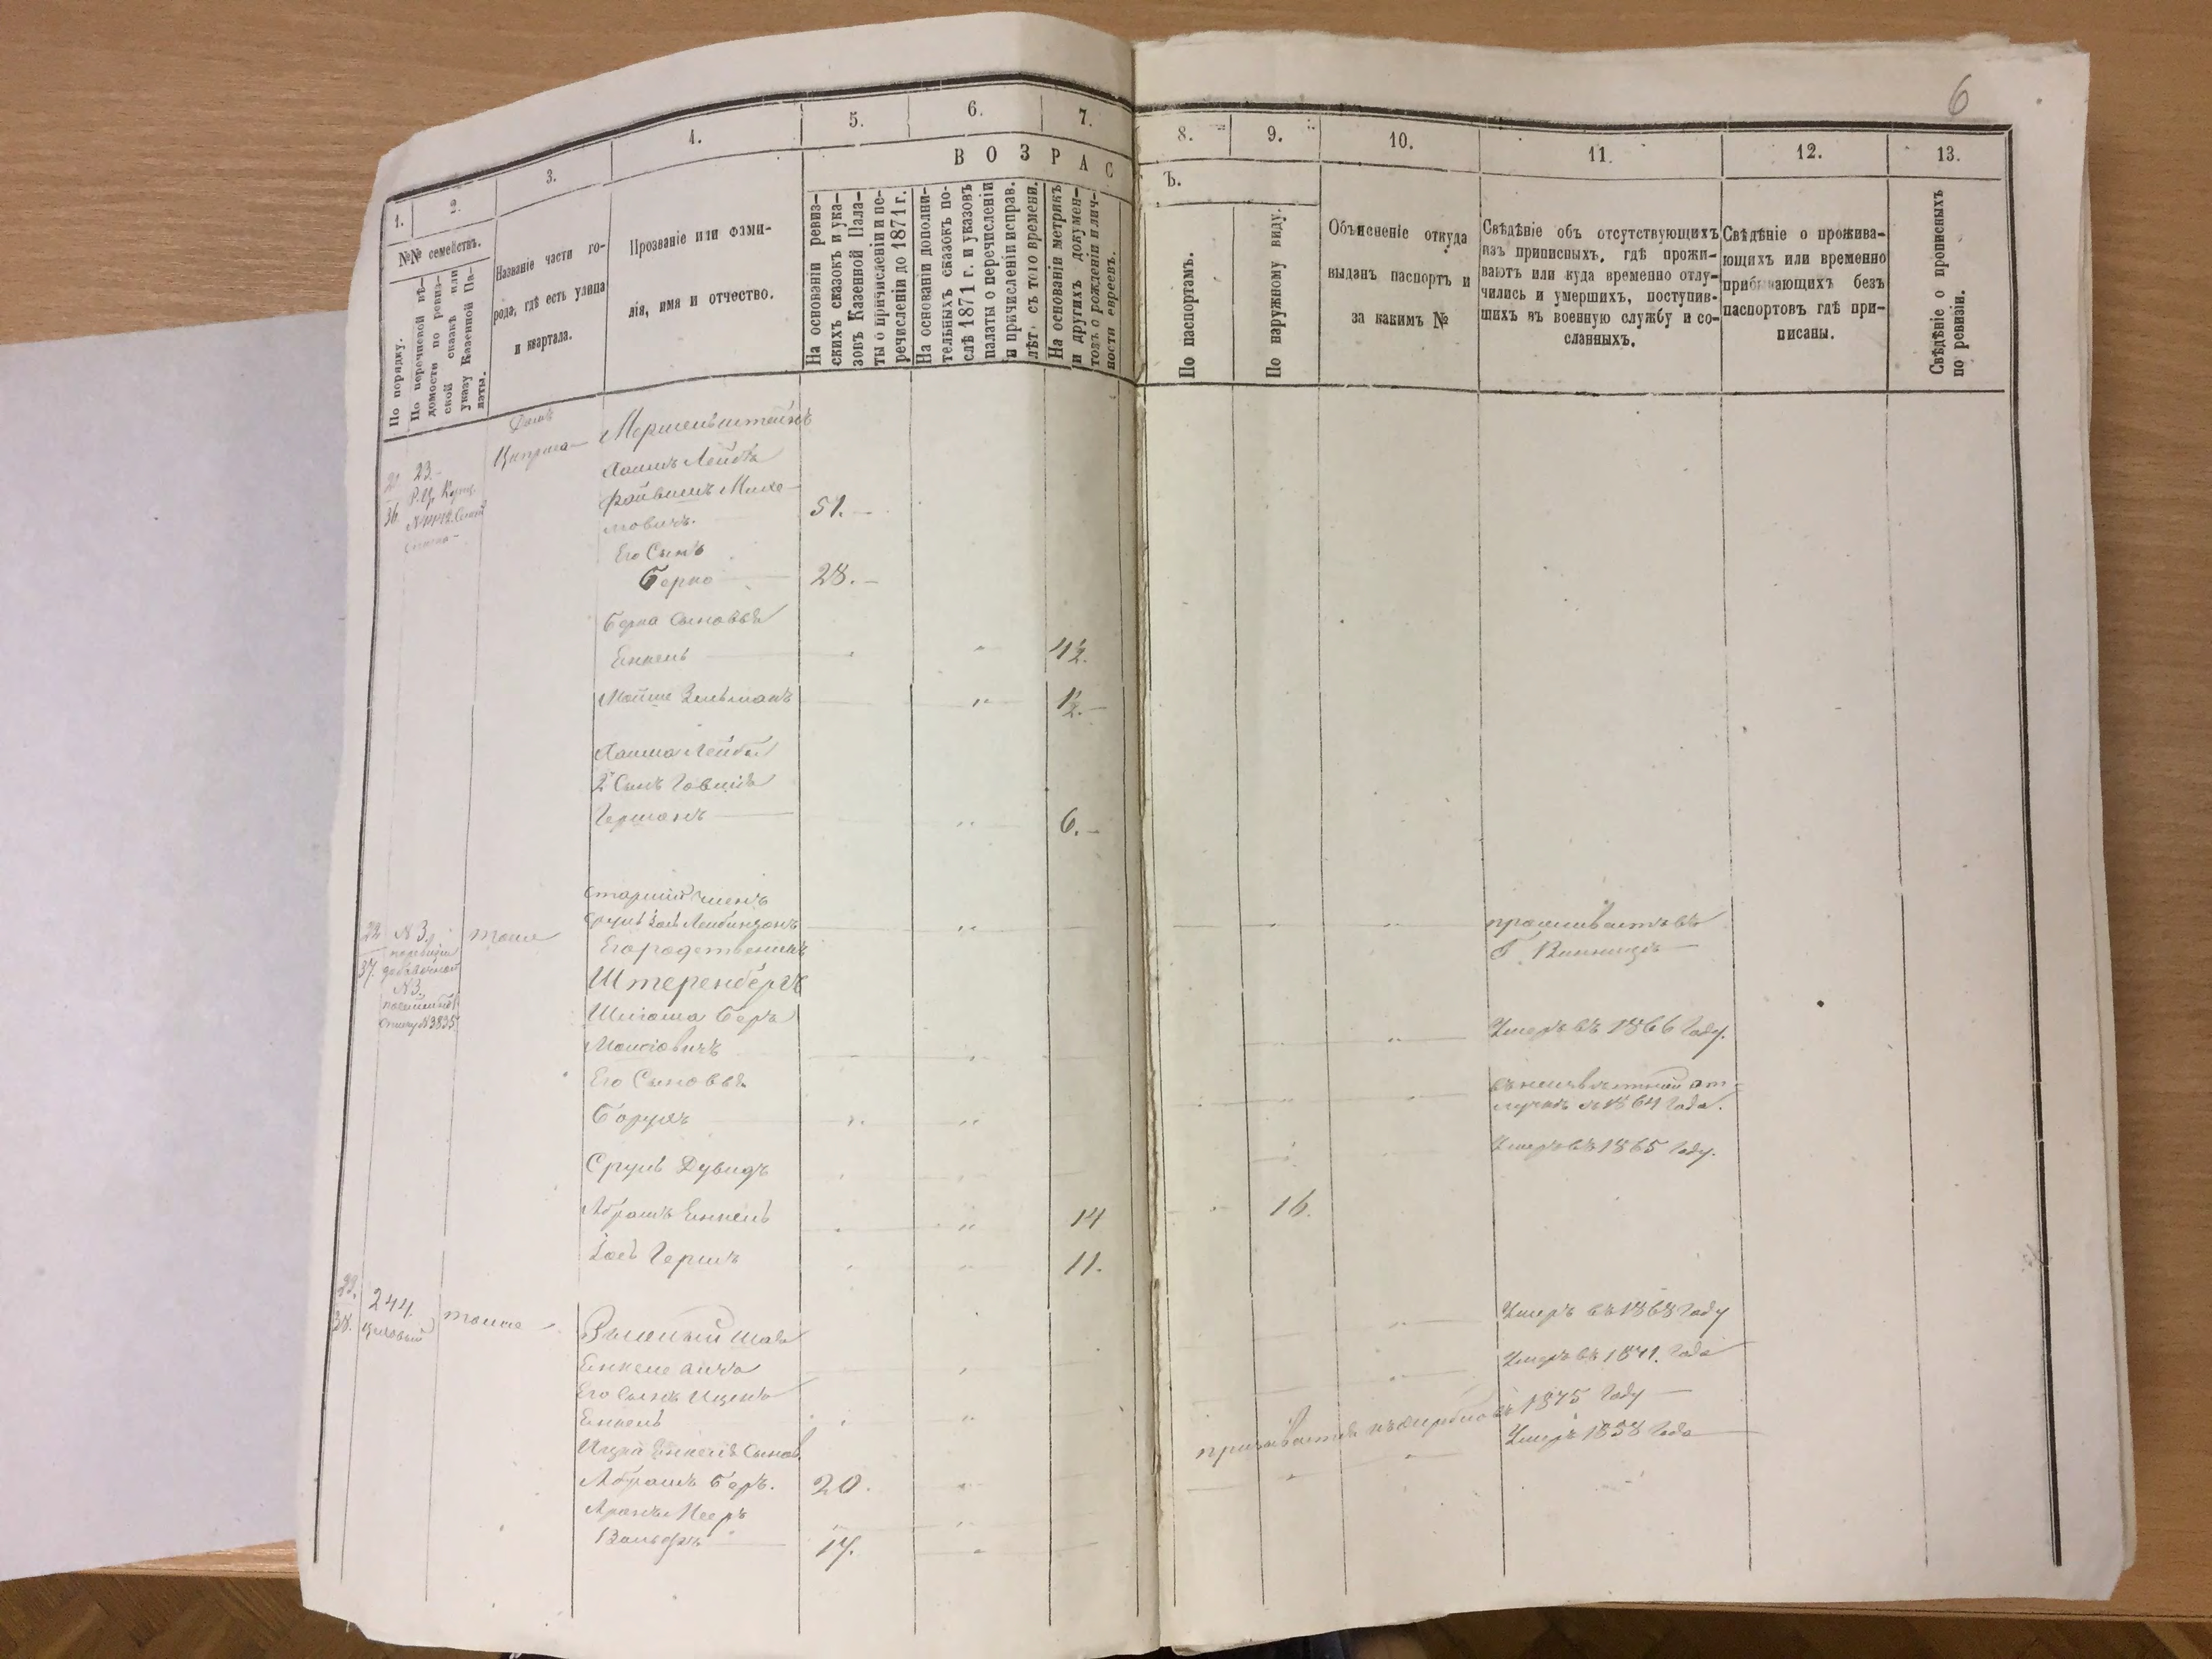 6
1.
2.
3.
4.
5.
6.
7.
8.
9.
10.
11.
12.
13.
ВОЗРАС
Ъ.
№№ семействъ.
По порядку.
По перечневой вѣ-
домости по ревиз-
ской сказкѣ или
указу Казенной Па-
латы.
Названіе части го-
рода, гдѣ есть улица
и квартала.
Прозваніе или фами-
лія, имя и отчество.
На основаніи ревиз-
скихъ сказокъ и ука-
зовъ Казенной Пала-
ты о причисленіи и пе-
речисленіи до 1871 г.
На основаніи дополни-
тельныхъ сказокъ по-
слѣ 1871 г. и указовъ
палаты о перечисленіи
и причисленіи исправ.
лѣт. съ того времени.
На основаніи метрикъ
и другихъ докумен-
товъ о рожденіи и лич-
ности евреевъ.
По паспортамъ.
По наружному виду.
Объясненіе откуда
выданъ паспортъ и
за какимъ №
Свѣдѣніе объ отсутствующихъ
изъ приписныхъ, гдѣ прожи-
ваютъ или куда временно отлу-
чились и умершихъ, поступив-
шихъ въ военную службу и со-
сланныхъ.
Свѣдѣніе о прожива-
ющихъ или временно
прибывающихъ безъ
паспортовъ гдѣ при-
писаны.
Свѣдѣніе о прописныхъ
по ревизіи.
36.
23.
Домъ
Хаимъ Лейба
Файвишъ Михе-
ловичъ. 51.
Его Сынъ
Берко 28.
Берка Сыновья
Енкель 4½.
Мойше Зельманъ ½.
Хаима Лейбы
2й Сынъ Говшія
Германъ 6.
22
37.
N 3.
N3.
тоже
Старшій членъ
проживаетъ въ
Его родственникъ
Г. Винницѣ
Штеренбергъ
Шлёма Беръ
Мошковичъ
Умеръ въ 1866 Году.
Его Сыновья
Борухъ
въ неизвѣстной от-
лучкѣ съ 1864 Года.
Сруль Дувидъ
Умеръ въ 1865 Году.
Абрамъ Енкель 14 16.
Іосъ Гершъ 11.
23.
38.
244.
тоже
Шая
Умеръ въ 1868 Году
Енкелевичъ
Умеръ въ 1871. Года
Его Сынъ Ицекъ
Енкель
Ицка Енкеля Сынов.
въ 1875 Году
Умеръ 1858 Года
Абрамъ Беръ. 20.
Аронъ Мееръ
Вольфъ 17.